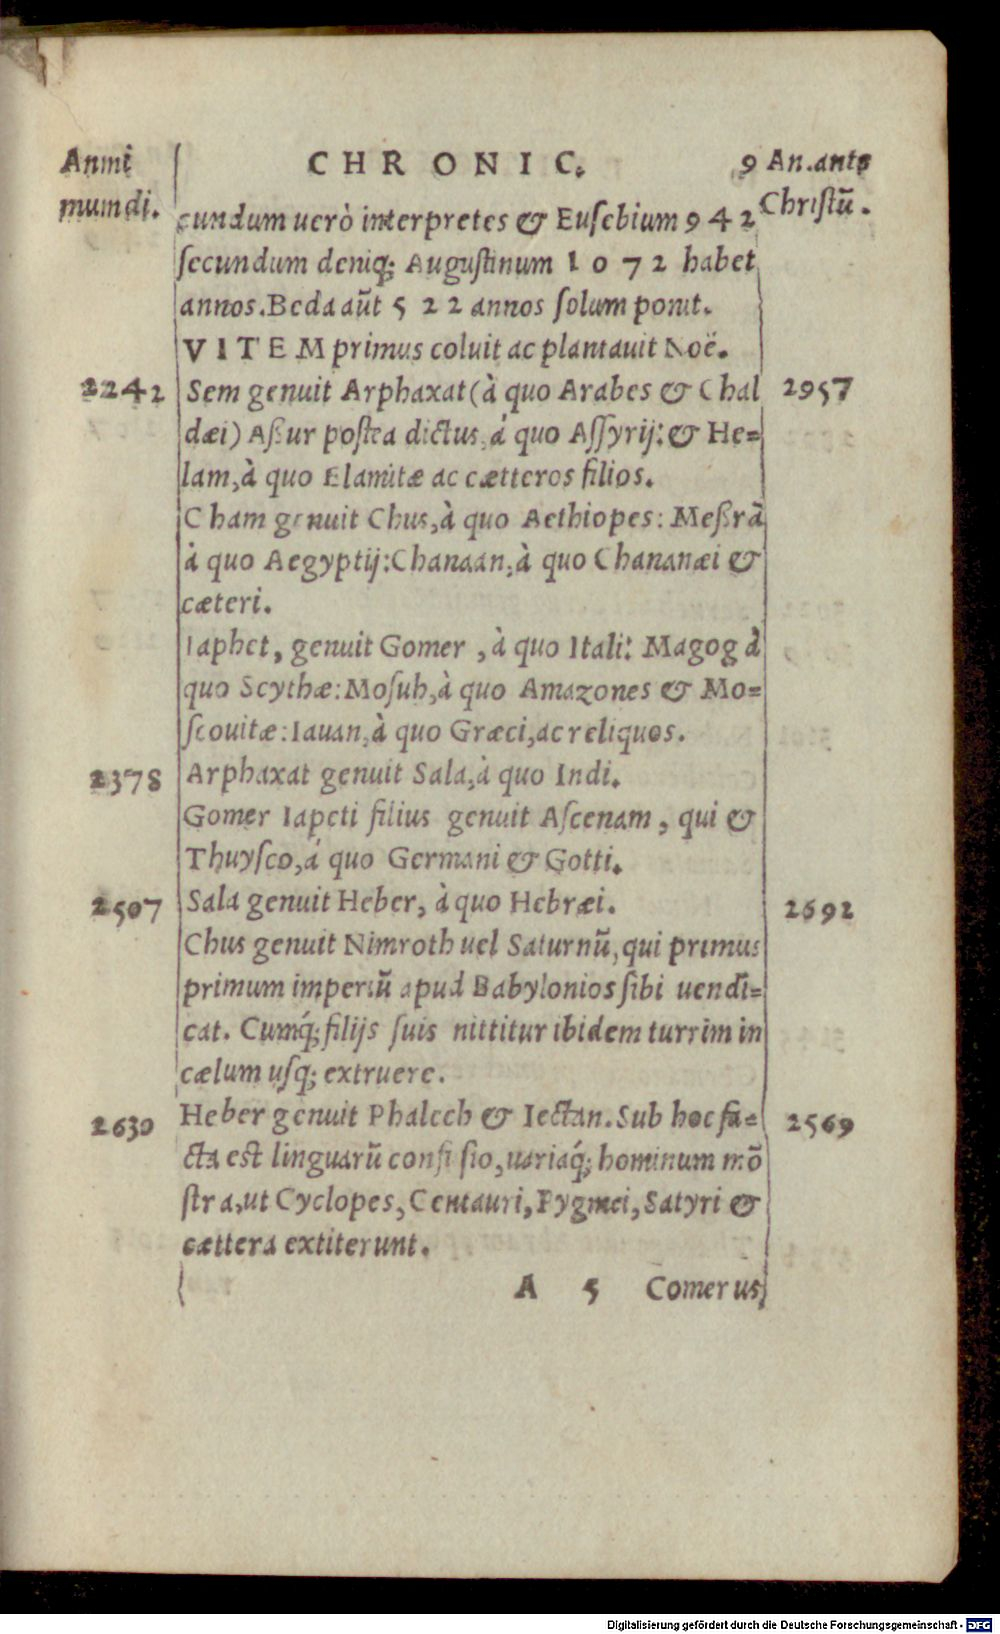 Anni CHRONIC. 9 An.ante
mundi. Christū.
cundum uerò interpretes & Eusebium 942
secundum deniq; Augustinum 1072 habet
annos. Beda aūt 522 annos solum ponit.
VITEM primus coluit ac plantauit Noë.
2242 Sem genuit Arphaxat (à quo Arabes & Chal 2957
dæi) Aßur postea dictus, á quo Assyrij: & He=
lam, à quo Elamitæ ac cætteros filios.
Cham genuit Chus, à quo Aethiopes: Meßrā
à quo Aegyptij: Chanaan, à quo Chananæi &
cæteri.
Iaphet, genuit Gomer, à quo Itali: Magog à
quo Scythæ: Mosuh, à quo Amazones & Mo=
scouitæ: Iauan, à quo Græci, ac reliquos.
2378 Arphaxat genuit Sala, à quo Indi.
Gomer Iapeti filius genuit Ascenam, qui &
Thuysco, á quo Germani & Gotti.
2507 Sala genuit Heber, à quo Hebræi. 2692
Chus genuit Nimroth uel Saturnū, qui primus
primum imperiū apud Babylonios sibi uendi=
cat. Cumq́; filijs suis nittitur ibidem turrim in
cælum usq; extruere.
2630 Heber genuit Phalech & Iectan. Sub hoc fa= 2569
cta est linguarū confusio, uariaq́; hominum mō
stra, ut Cyclopes, Centauri, Pygmei, Satyri &
cættera extiterunt.
A 5 Comerus
Digitalisierung gefördert durch die Deutsche Forschungsgemeinschaft - DFG